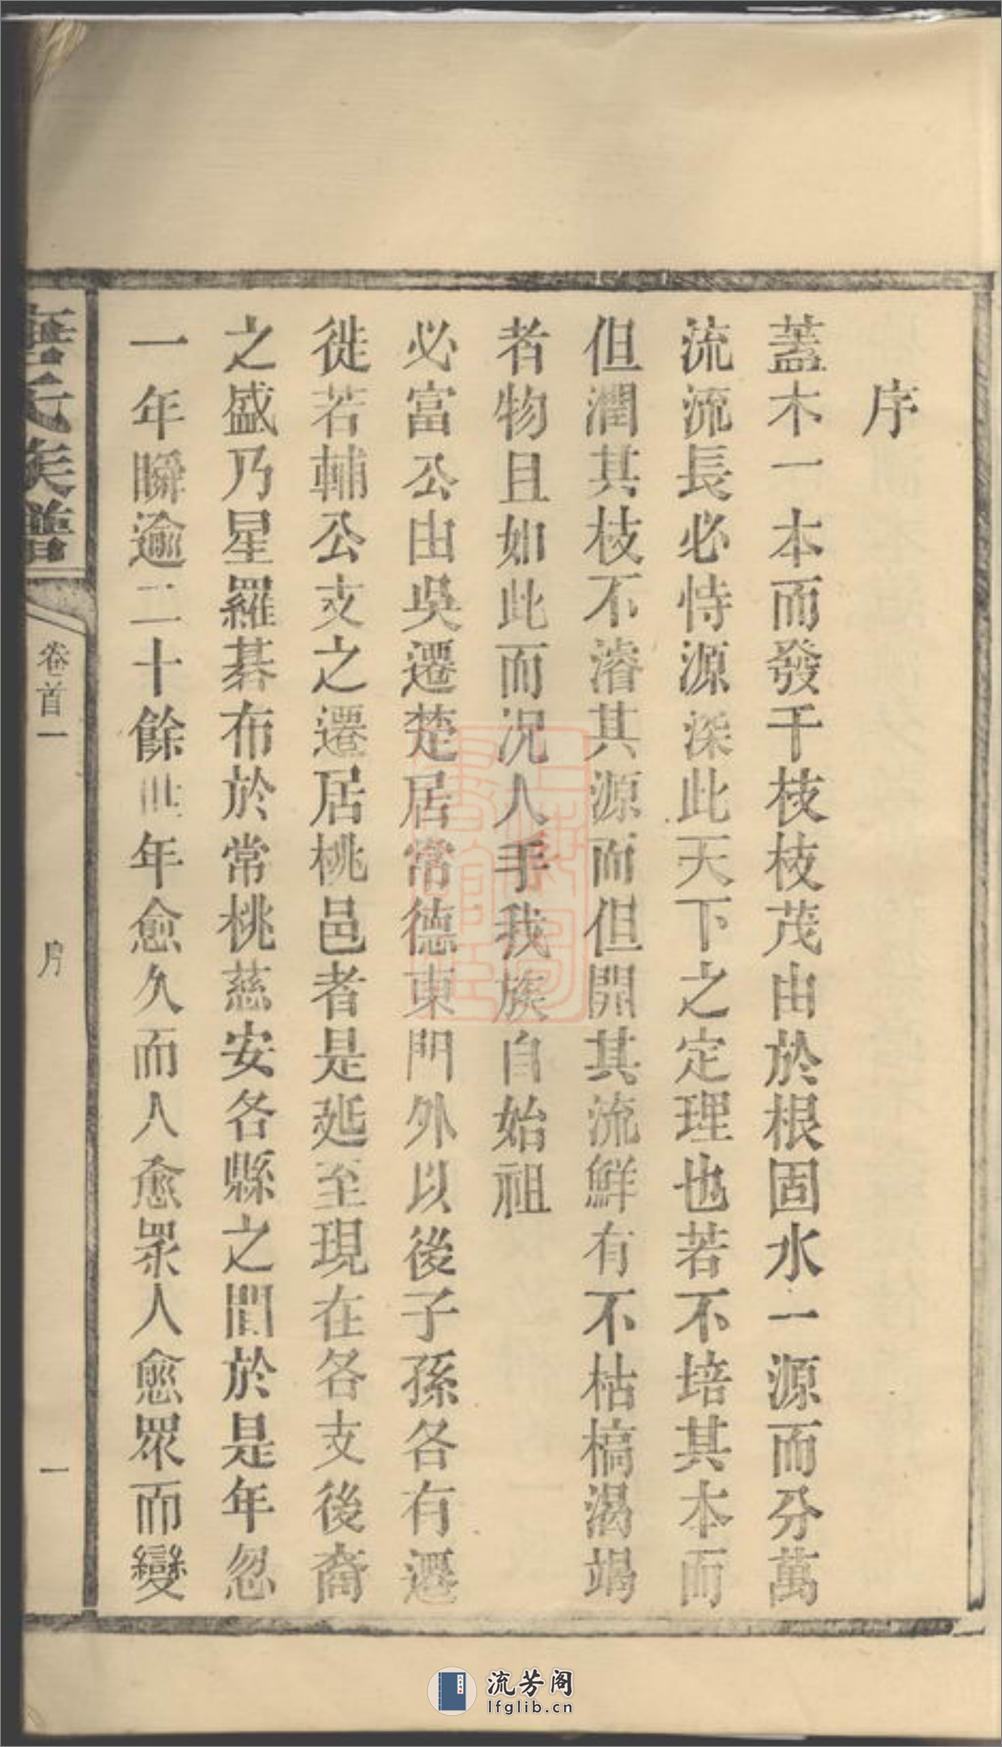 序
蓋木一本而發千枝枝茂由於根固水一源而分萬
流流長必恃源深此天下之定理也若不培其本而
但潤其枝不濬其源而但開其流鮮有不枯槁渴竭
者物且如此而况人乎我族自始祖
必富公由吳遷楚居常德東門外以後子孫各有遷
徙若輔公支之遷居桃邑者是延至現在各支後裔
之盛乃星羅碁布於常桃慈安各縣之間於是年忽
一年瞬逾二十餘世年愈久而人愈眾人愈眾而變
氏族譜
卷首一
序
一
流芳阁
lfglib.cn